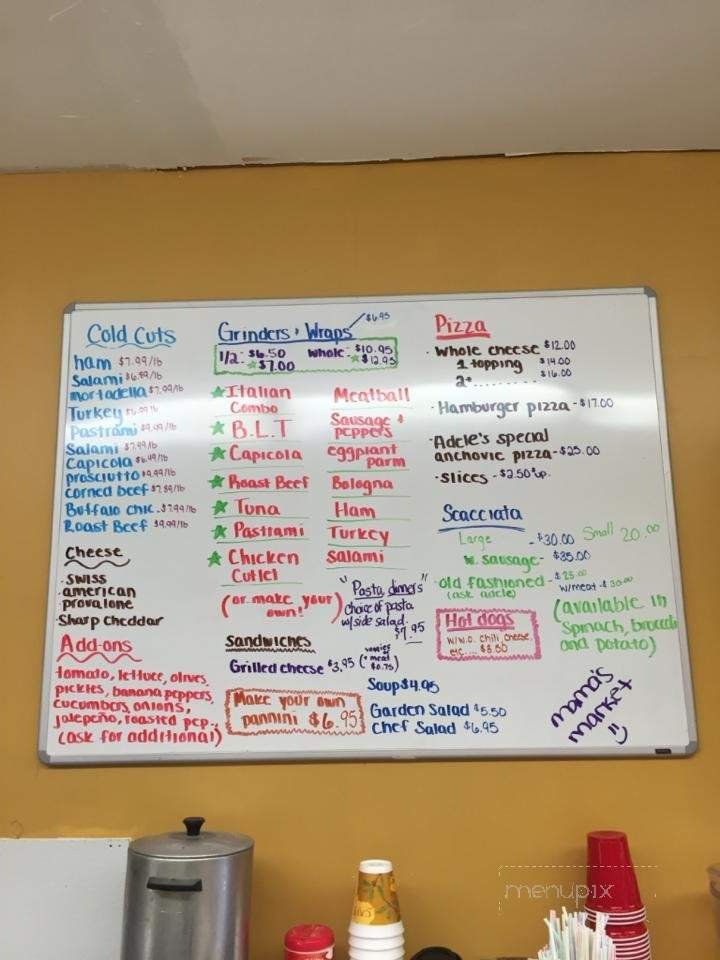 Cold Cuts
ham $7.99/lb
Salami $6.99/lb
mortadella $7.99/lb
Turkey $6.99/lb
Pastrami $9.99/lb
Salami $7.99/lb
Capicola $6.49/lb
prosciutto $9.99/lb
corned beef $7.89/lb
Buffalo chic. $7.99/lb
Roast Beef $9.99/lb
Cheese
· swiss
· american
· provalone
· Sharp cheddar
Add-ons
tomato, lettuce, olives,
pickles, banana peppers,
cucumbers, onions,
jalepeño, roasted pep.,
(ask for additional)
Grinders + Wraps $6.95
1/2: $6.50 whole: $10.95
$7.00 $12.95
Italian Combo
B.L.T
Capicola
Roast Beef
Tuna
Pastrami
Chicken Cutlet
(or make your own!)
Meatball
Sausage + peppers
eggplant parm
Bologna
Ham
Turkey
Salami
"Pasta dinners"
choice of pasta
w/side salad
$7.95
Sandwiches
Grilled cheese $3.95 (+ meat $0.75)
Make your own
pannini $6.95
Soup $4.95
Garden Salad $5.50
Chef Salad $6.95
Pizza
· Whole cheese $12.00
1 topping $14.00
2+ ......... $16.00
· Hamburger pizza - $17.00
· Adele's special
anchovie pizza - $25.00
· slices - $2.50+up.
Scacciata
Large - $30.00 Small 20.00
w. sausage - $35.00
· old fashioned - $25.00
(ask adele) w/meat - $30.00
Hot dogs
w/w.o. chili, cheese,
etc.... $3.50
(available in
spinach, broccoli
and potato)
mama's
market
menupix